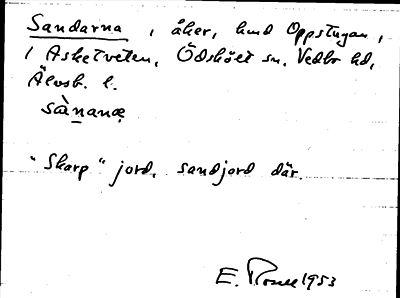 Sandarna, åker, hmd Oppstugan,
1 Asketveten, Ödskölt sn, Vedbo hd,
Älvsb. l.
sànanæ
"Skarp" jord, sandjord där.
E. 1953